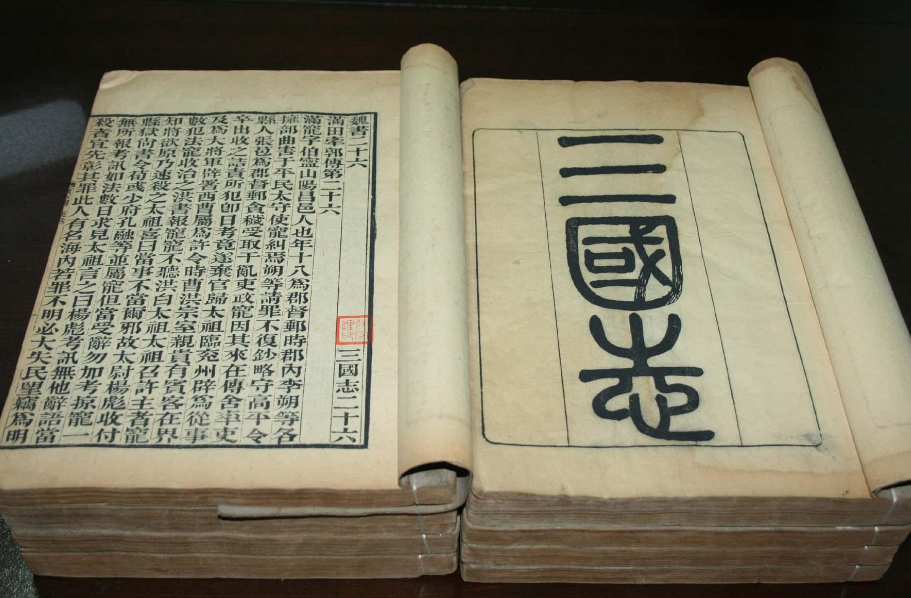 三國志
魏書二十六 三國志二十六
滿田牽郭傳第二十六
滿寵字伯寧山陽昌邑人也年十八爲郡督郵時郡內李朔等各
擁部曲害于平民太守使寵糾焉朔等請罪不復鈔略守高平令
縣人張苞爲郡督郵貪穢受取干亂吏政寵因其來在傳舍率吏
卒出收之詰責所犯卽日考竟遂棄官歸太祖臨兖州辟爲從事
及爲大將軍辟署西曹屬爲許令時曹洪宗室親貴有賓客在界
數犯法寵收治之洪書報寵寵不聽洪白太祖太祖召許主者寵
知將欲原乃速殺之太祖喜曰當事不當爾邪故太尉楊彪收付
縣獄尚書令荀彧少府孔融等並屬寵但當受辭勿加考掠寵一
無所報考訊如法數日求見太祖言之曰楊彪考訊無他辭語當
殺者宜先彰其罪此人有名海內若罪不明必大失民望竊爲明